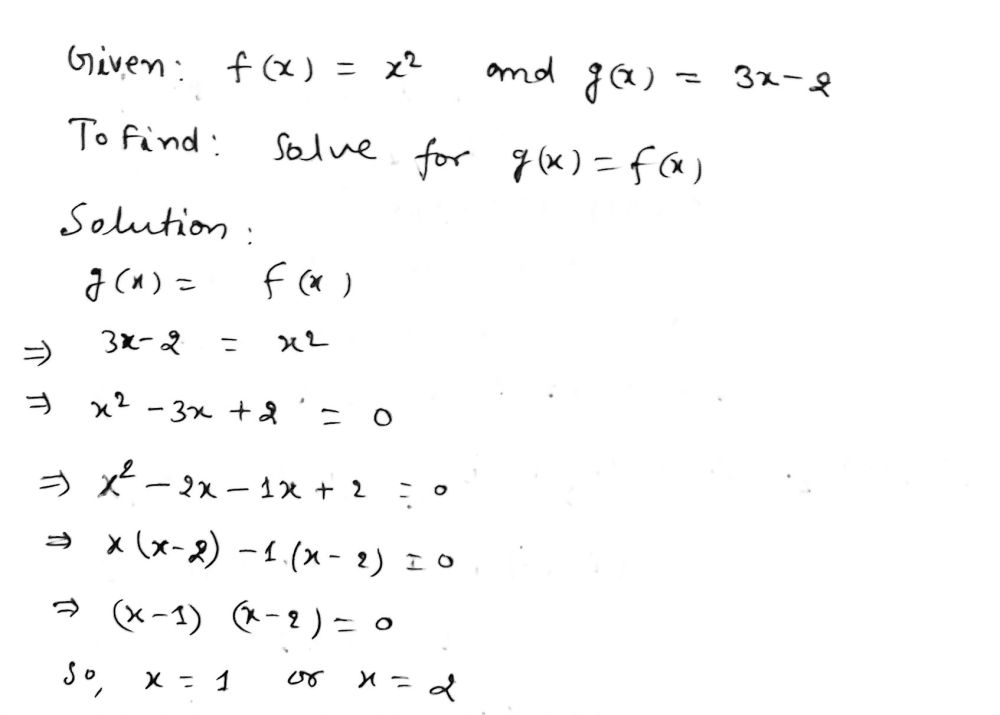 Given: f(x) = x² and g(x) = 3x-2
To Find: Solve for g(x) = f(x)
Solution:
g(x) = f(x)
⇒ 3x-2 = x²
⇒ x² - 3x + 2 = 0
⇒ x² - 2x - 1x + 2 = 0
⇒ x(x-2) - 1.(x-2) = 0
⇒ (x-1) (x-2) = 0
So, x = 1 or x = 2